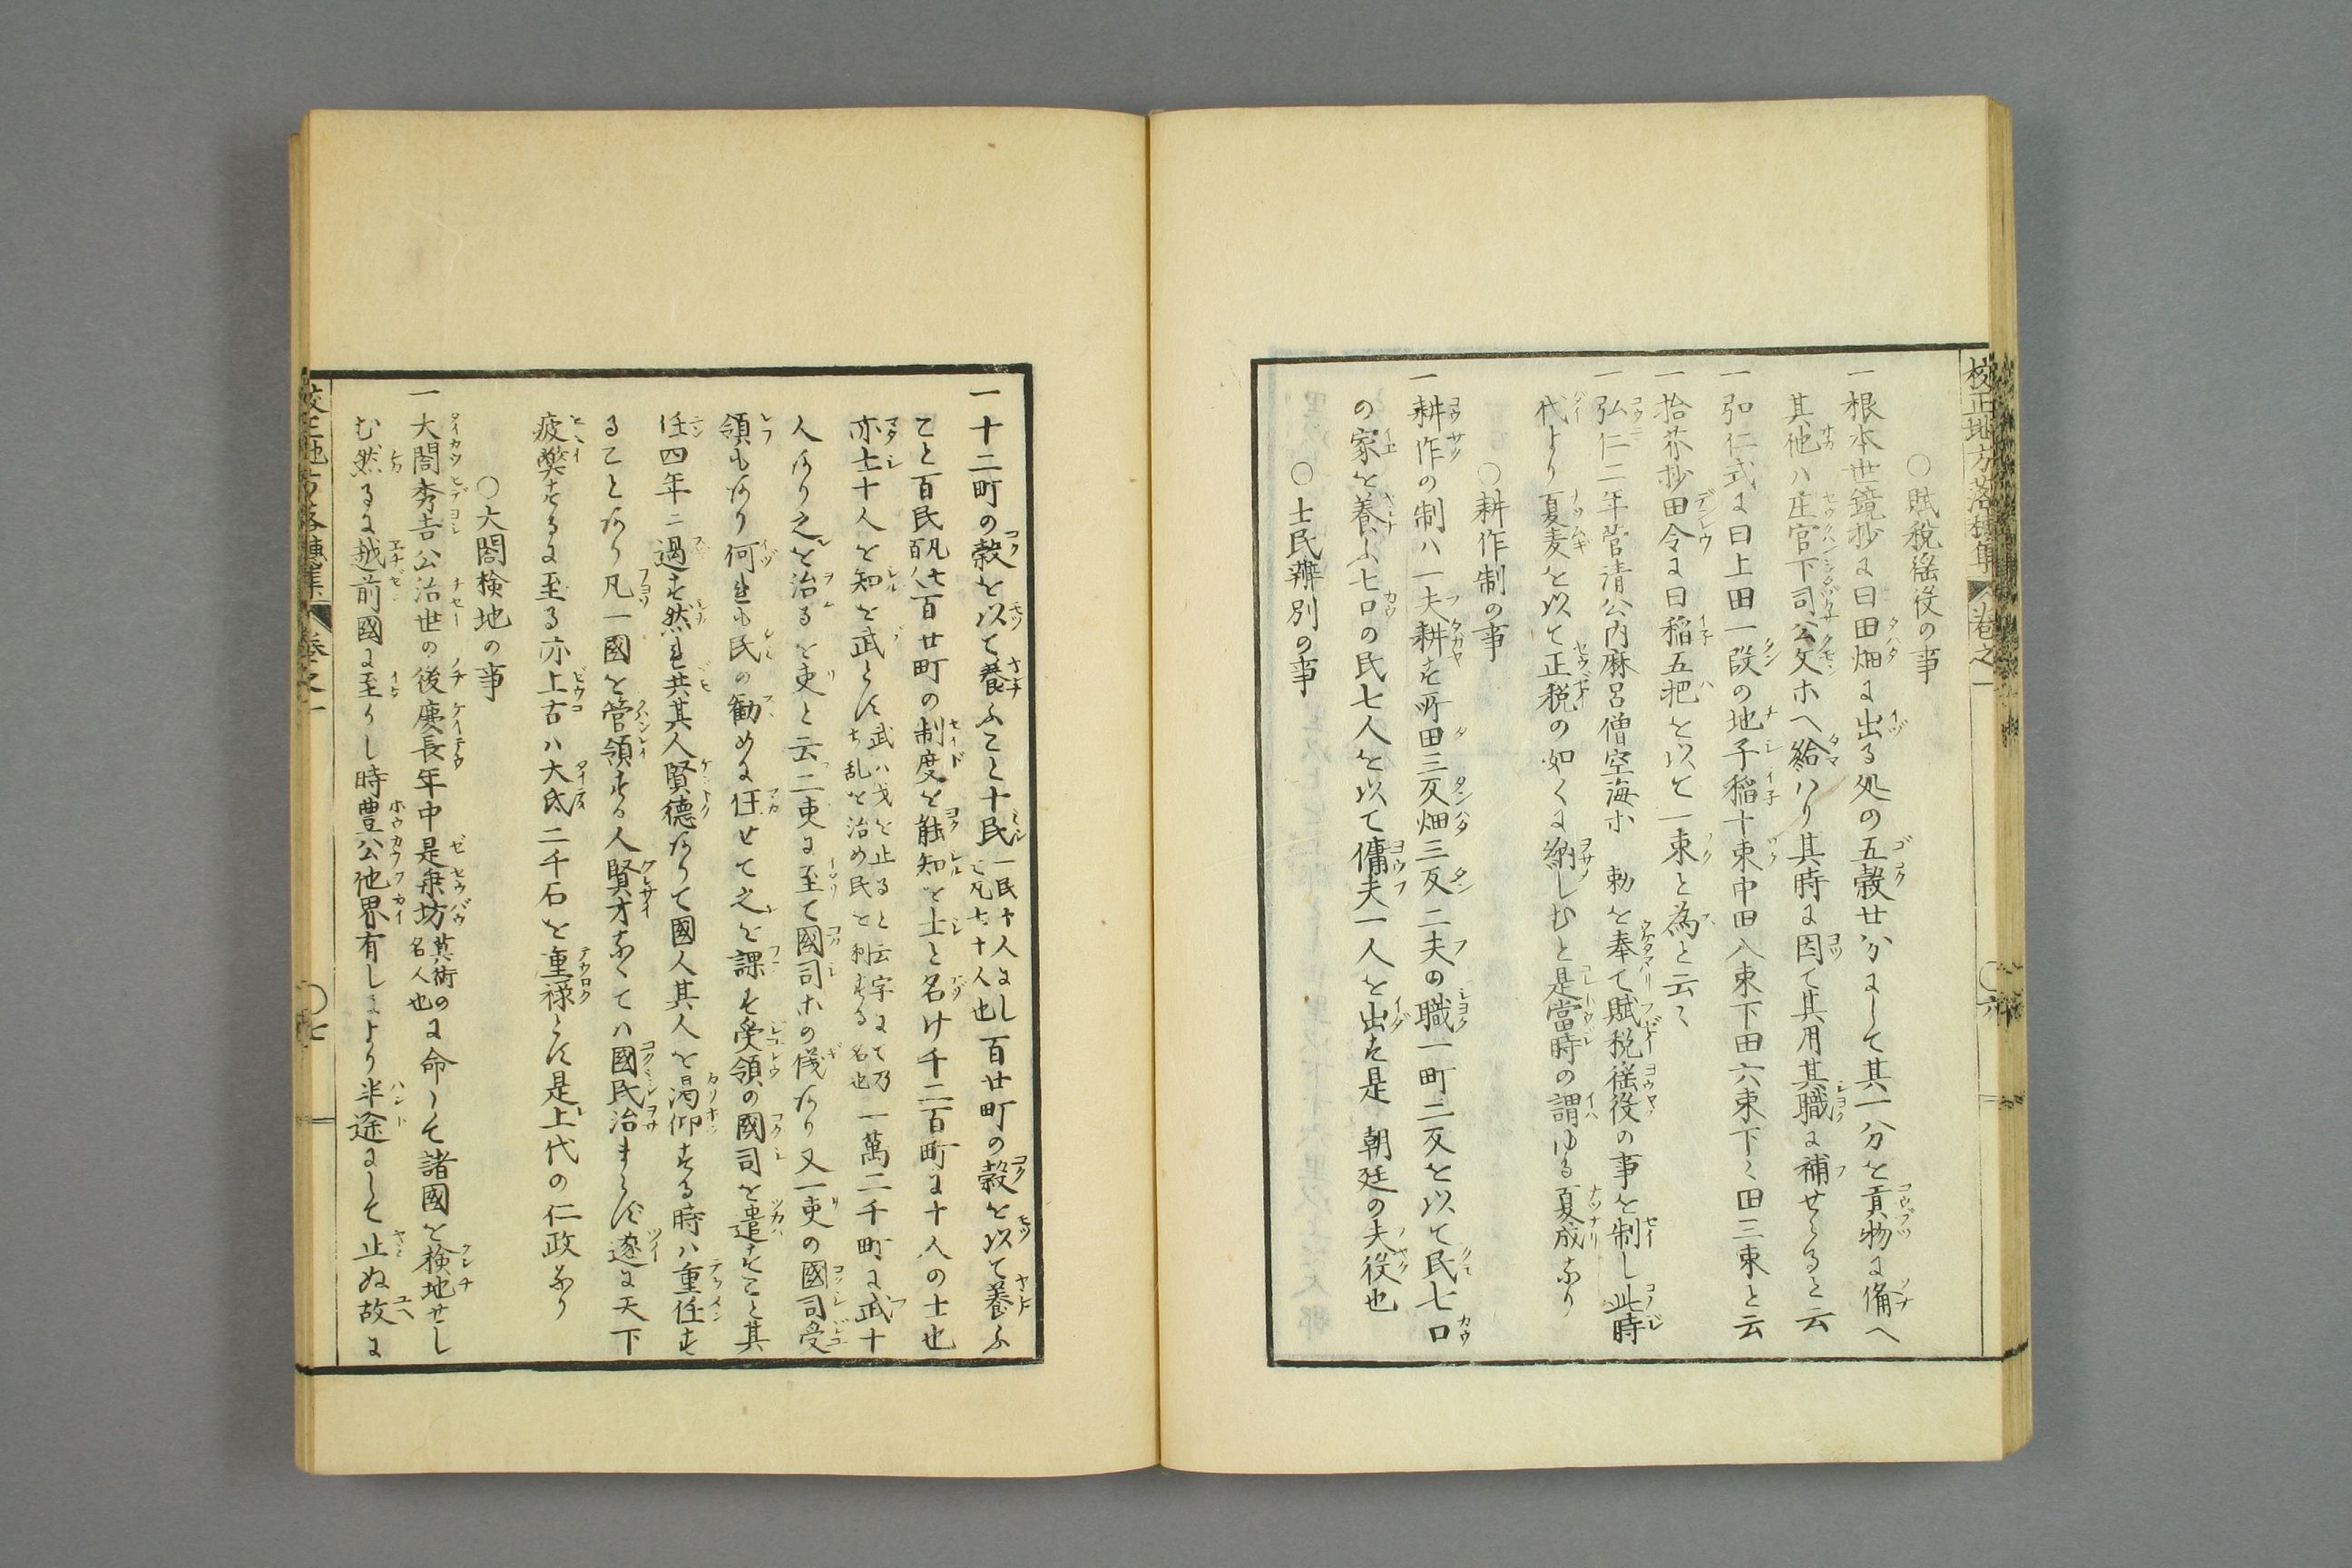 校正地方落穂集 巻之一 〇六
○賦税徭役の事
一根本世鏡抄に曰田畑に出る処の五穀廿分にして其一分を貢物に備へ
其他ハ庄官下司公文ホへ給ハり其時に因て其用其職に補せらると云
一弘仁式に曰上田一段の地子稲十束中田八束下田六束下〻田三束と云
一拾芥抄田令に曰稲五把を以を一束と為と云〻
一弘仁二年菅清公内麻呂僧空海ホ 勅を奉て賦税徭役の事を制し此時
代より夏麦を以て正税の如くに納しむと是當時の謂ゆる夏成なり
○耕作制の事
一耕作の制ハ一夫耕す所田三反畑三反二夫の職一町二反を以て民七口
の家を養ふ七口の民七人を以て傭夫一人を出す是 朝廷の夫役也
○士民辨別の事
一十二町の穀を以て養ふこと十民一民十人にし百廿町の穀を以て養ふ
と凡七十人也
こと百民凡七百廿町の制度を能知を士と名け千二百町に十人の士也
百ノ
亦士十人を知を武とす武ハ戈を止ると云字にて乃一萬二千町に武十
ち乱を治め民を制する名也
人あり之を治るを吏と云二吏に至て國司ホの儀あり又一吏の國司受
領もあり何れも民の勧めに任せて之を課す受領の國司を遣すこと其
任四年ニ過す然れ共其人賢徳ありて國人其人を渇仰する時ハ重任す
ることあり凡一國を管領する人賢才なくてハ國民治まらす遂に天下
疲弊するに至る亦上古ハ大氐二千石を重禄とす是上代の仁政なり
○大閤検地の事
一大閤秀吉公治世の後慶長年中是乗坊其術のに命して諸國を検地せし
名人也
む然るに越前國に至りし時豊公他界有しにより半途にして止ぬ故に
校正地方落穂集 巻之一 〇七